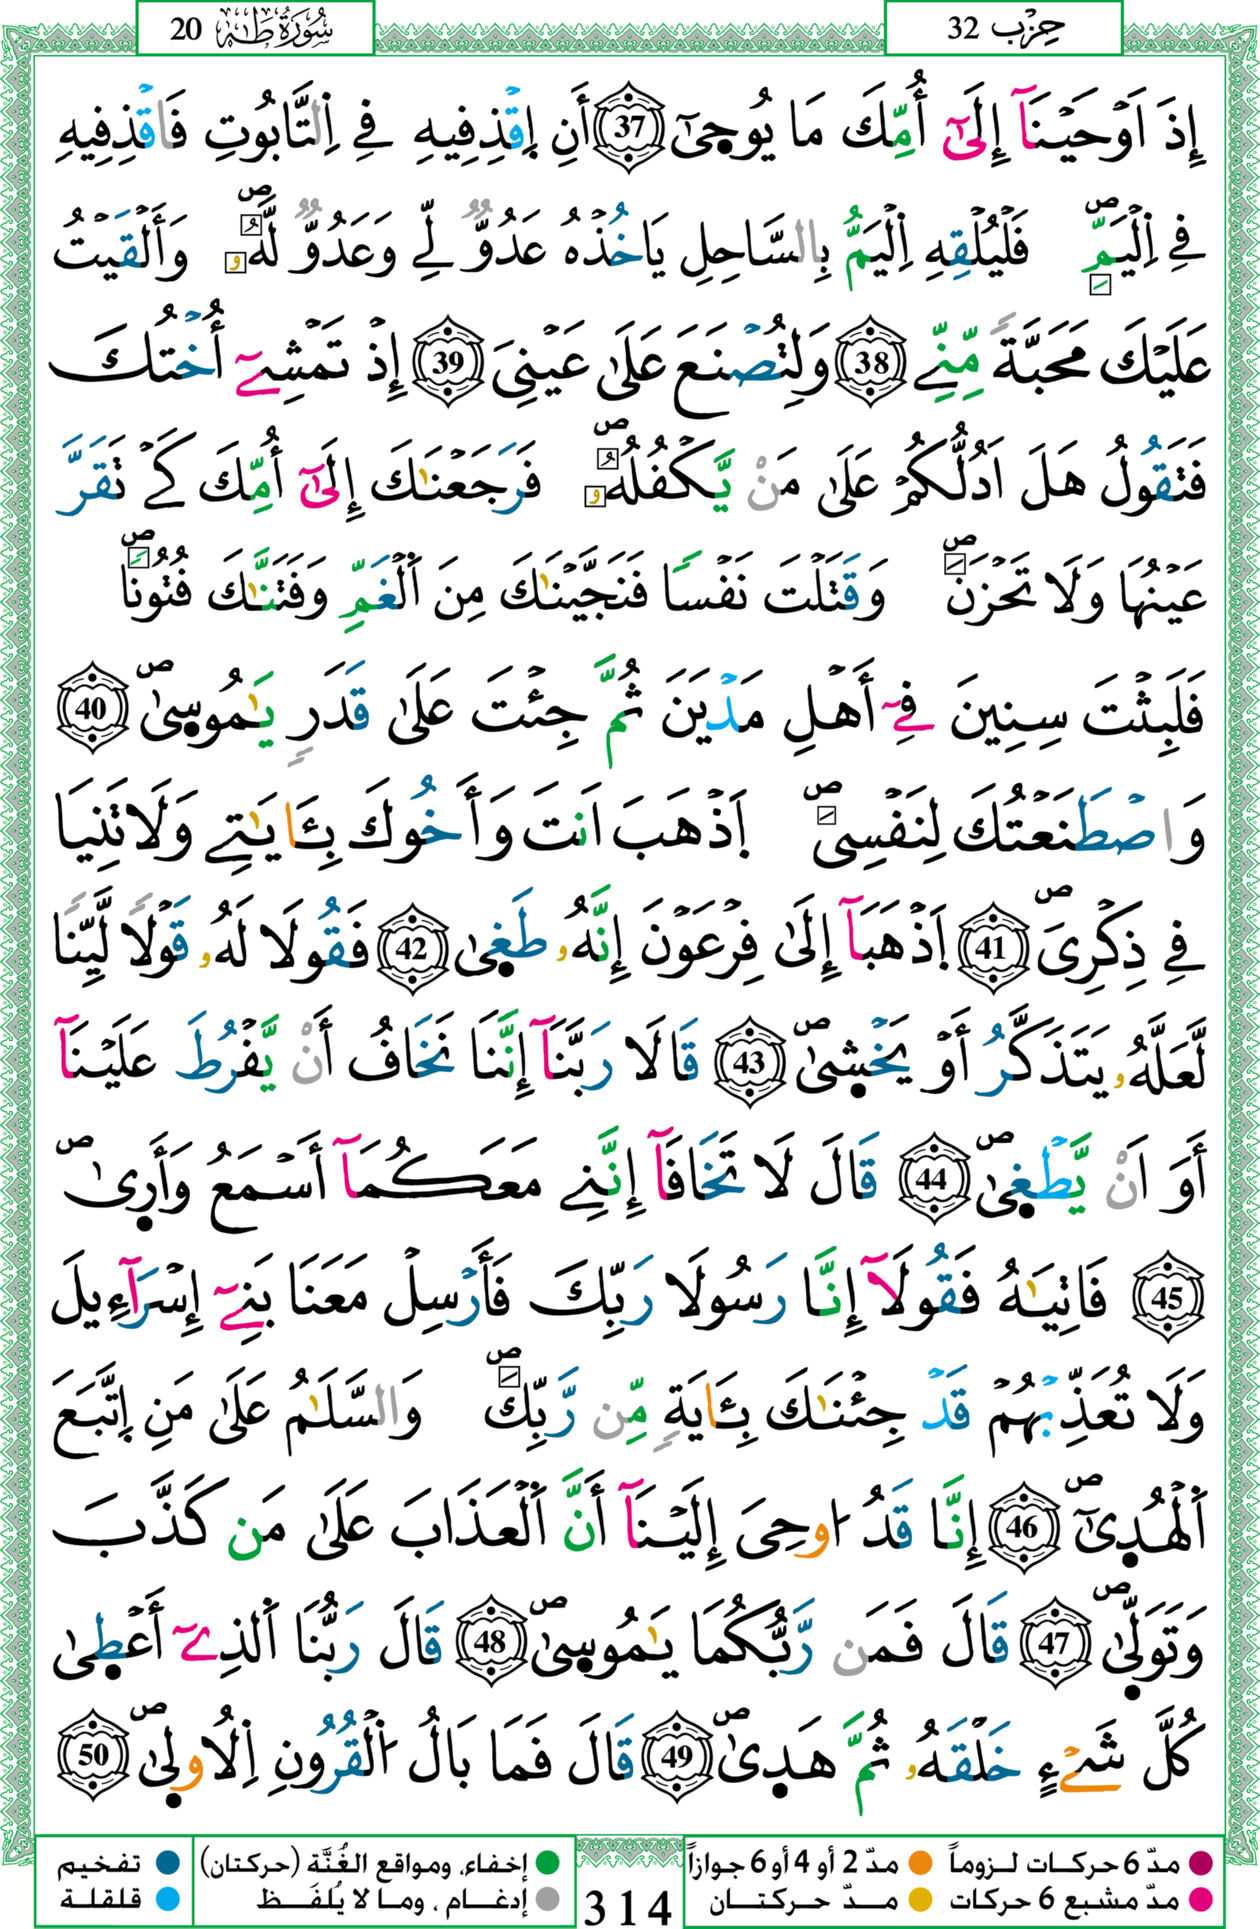 حِزْب 32
سُورَةُ طَهَ 20
إِذَ اَوْحَيْنَآ إِلَىٰٓ أُمِّكَ مَا يُوحٜىٰٓ 37 أَنِ اِ۪قْذِفِيهِ فِے اِ۬لتَّابُوتِ فَاقْذِفِيهِ
فِے اِ۬لْيَمِّ ص فَلْيُلْقِهِ اِ۬لْيَمُّ بِالسَّاحِلِ يَاخُذْهُ عَدُوٌّ لِّے وَعَدُوٌّ لَّهُۥ ص وَأَلْقَيْتُ
عَلَيْكَ مَحَبَّةً مِّنِّے 38 وَلِتُصْنَعَ عَلَىٰ عَيْنِىَ 39 إِذْ تَمْشِےٓ أُخْتُكَ
فَتَقُولُ هَلَ اَدُلُّكُمْ عَلَىٰ مَنْ يَّكْفُلُهُۥ ص فَرَجَعْنَٰكَ إِلَىٰٓ أُمِّكَ كَے تَقَرَّ
عَيْنُهَا وَلَا تَحْزَنَ ص وَقَتَلْتَ نَفْسًا فَنَجَّيْنَٰكَ مِنَ اَ۬لْغَمِّ وَفَتَنَّٰكَ فُتُونًا ص
فَلَبِثْتَ سِنِينَ فِےٓ أَهْلِ مَدْيَنَ ثُمَّ جِئْتَ عَلَىٰ قَدَرٍ يَٰمُوسٜىٰ ص 40
وَاصْطَنَعْتُكَ لِنَفْسِى ص اَ۪ذْهَبَ اَنتَ وَأَخُوكَ بِـَٔايَٰتِے وَلَا تَنِيَا
فِے ذِكْرِىَ ص 41 اَ۪ذْهَبَآ إِلَىٰ فِرْعَوْنَ إِنَّهُۥ طَغٜىٰ 42 فَقُولَا لَهُۥ قَوْلًا لَّيِّنًا
لَّعَلَّهُۥ يَتَذَكَّرُ أَوْ يَخْشٜىٰ ص 43 قَالَا رَبَّنَآ إِنَّنَا نَخَافُ أَنْ يَّفْرُطَ عَلَيْنَآ
أَوَ اَنْ يَّطْغٜىٰ ص 44 قَالَ لَا تَخَافَآ إِنَّنِے مَعَكُمَآ أَسْمَعُ وَأَرٜىٰ ص
45 فَاتِيَٰهُ فَقُولَآ إِنَّا رَسُولَا رَبِّكَ فَأَرْسِلْ مَعَنَا بَنِےٓ إِسْرَآءِيلَ
وَلَا تُعَذِّبْهُمْ قَدْ جِئْنَٰكَ بِـَٔايَةٍ مِّن رَّبِّكَ ص وَالسَّلَٰمُ عَلَىٰ مَنِ اِ۪تَّبَعَ
اَ۬لْهُدٜىٰٓ ص 46 إِنَّا قَدُ ا۟وحِىَ إِلَيْنَآ أَنَّ اَ۬لْعَذَابَ عَلَىٰ مَن كَذَّبَ
وَتَوَلّٜىٰ ص 47 قَالَ فَمَن رَّبُّكُمَا يَٰمُوسٜىٰ ص 48 قَالَ رَبُّنَا اَ۬لذِےٓ أَعْطٜىٰ
كُلَّ شَےْءٍ خَلْقَهُۥ ثُمَّ هَدٜىٰ ص 49 قَالَ فَمَا بَالُ اُ۬لْقُرُونِ اِ۬لُاولٜىٰ ص 50
مدّ 6 حركات لـزوماً مدّ 2 أو 4 أو 6 جوازاً
مدّ مشبع 6 حركات مـدّ حركتـان
314
إخفاء، ومواقع الغُنَّة (حركتان) تفخيم
إدغام ، وما لا يُلفَظ قلقلة